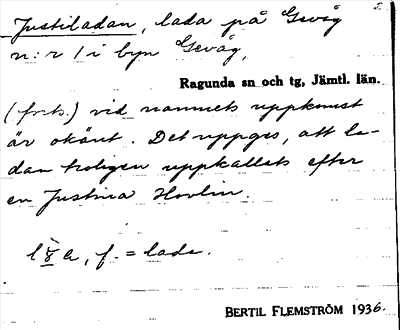 Justiladan, lada på Gevåg
n:r 1 i byn Gevåg,
Ragunda sn och tg, Jämtl. län.
(forts.) vid namnets uppkomst
är okänt. Det uppges, att la-
dan troligen uppkallats efter
en Justina Hovlin.
f. = lada.
BERTIL FLEMSTRÖM 1936.